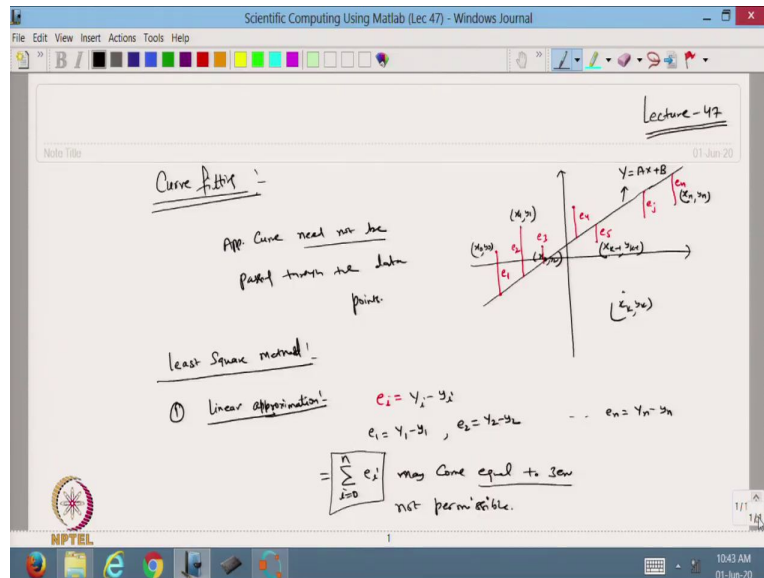 Scientific Computing Using Matlab (Lec 47) - Windows Journal
File Edit View Insert Actions Tools Help
Lecture-47
Note Title
01-Jun-20
Curve fitting :-
App. Curve need not be
passed through the data
points.
Y = Ax+B
(x₀,y₀)
(x₁,y₁)
e₁
e₂
e₃
e₄
e₅
eⱼ
eₙ
(xₙ,yₙ)
(xₖ₋₁, yₖ₋₁)
(xₖ,yₖ)
least Square method :-
① linear approximation :-
eᵢ = Yᵢ - yᵢ
e₁ = Y₁ - y₁ , e₂ = Y₂ - y₂ .. eₙ = Yₙ - yₙ
= n∑i=0 eᵢ may come equal to zero
not permissible.
NPTEL
1
1/1
10:43 AM
01-Jun-20